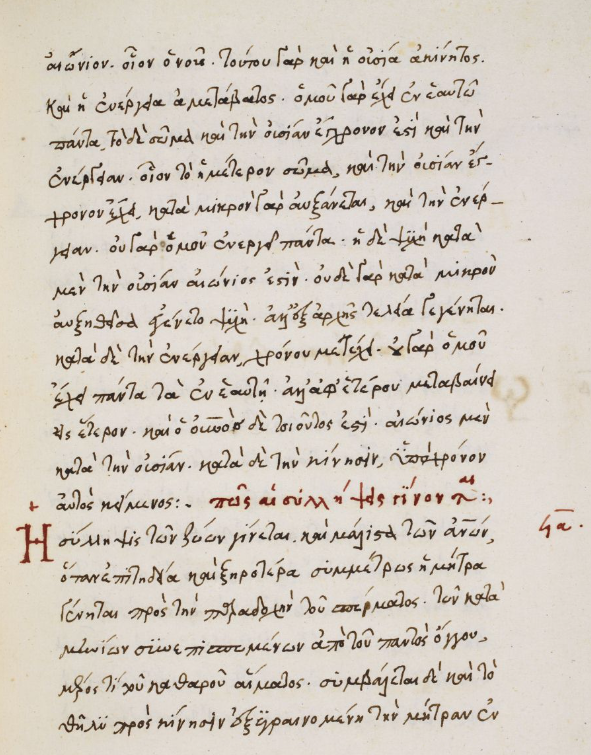 αἰώνιον. οἷον ὁ νοῦς. τούτου γὰρ καὶ ἡ οὐσία ἀκίνητος.
καὶ ἡ ἐνέργεια ἀμετάβατος. ὁμοῦ γὰρ ἔχει ἐν ἑαυτῷ
πάντα, τὸ δὲ σῶμα καὶ τὴν οὐσίαν ἔγχρονον ἐστὶ καὶ τὴν
ἐνέργειαν. οἷον τὸ ἡμέτερον σῶμα, καὶ τὴν οὐσίαν ἔγ-
χρονον ἔχει, κατὰ μικρὸν γὰρ αὐξάνεται, καὶ τὴν ἐνέρ-
γειαν. οὐ γὰρ ὁμοῦ ἐνεργεῖ πάντα. ἡ δὲ ψυχὴ κατὰ
μὲν τὴν οὐσίαν αἰώνιος ἐστὶν. οὐδὲ γὰρ κατὰ μικρὸν
αὐξηθεῖσα ἐγένετο ψυχὴ. ἀλλ' ἐξ ἀρχῆς τελεία γεγένηται.
κατὰ δὲ τὴν ἐνέργειαν, χρόνου μετέχει. οὐ γὰρ ὁμοῦ
ἔχει πάντα τὰ ἐν ἑαυτῇ. ἀλλ' ἀφ' ἑτέρου μεταβαίνει
εἰς ἕτερον. καὶ ὁ οὐρανὸς δὲ τοιοῦτος ἐστὶ. αἰώνιος μὲν
κατὰ τὴν οὐσίαν. κατὰ δὲ τὴν κίνησιν, ὑπὸ χρόνον
αὐτὸς κείμενος:. πῶς αἱ συλλήψεις γίνονται:.
Ἡ σύλληψις τῶν ζώων γίνεται, καὶ μάλιστα τῶν ἀνων,
ὅταν ἐπιτηδεία καὶ ξηροτέρα συμμέτρως ἡ μήτρα
γένηται πρὸς τὴν παραδοχὴν τοῦ σπέρματος. τῶν κατα
μηνίων συνεπισπωμένων ἀπὸ τοῦ παντὸς ὄγκου,
μέρος τὶ τοῦ καθαροῦ αἵματος. συμβάλλεται δὲ καὶ τὸ
θῆλυ πρὸς κίνησιν ἐξηραινομένη τὴν μήτραν ἐν